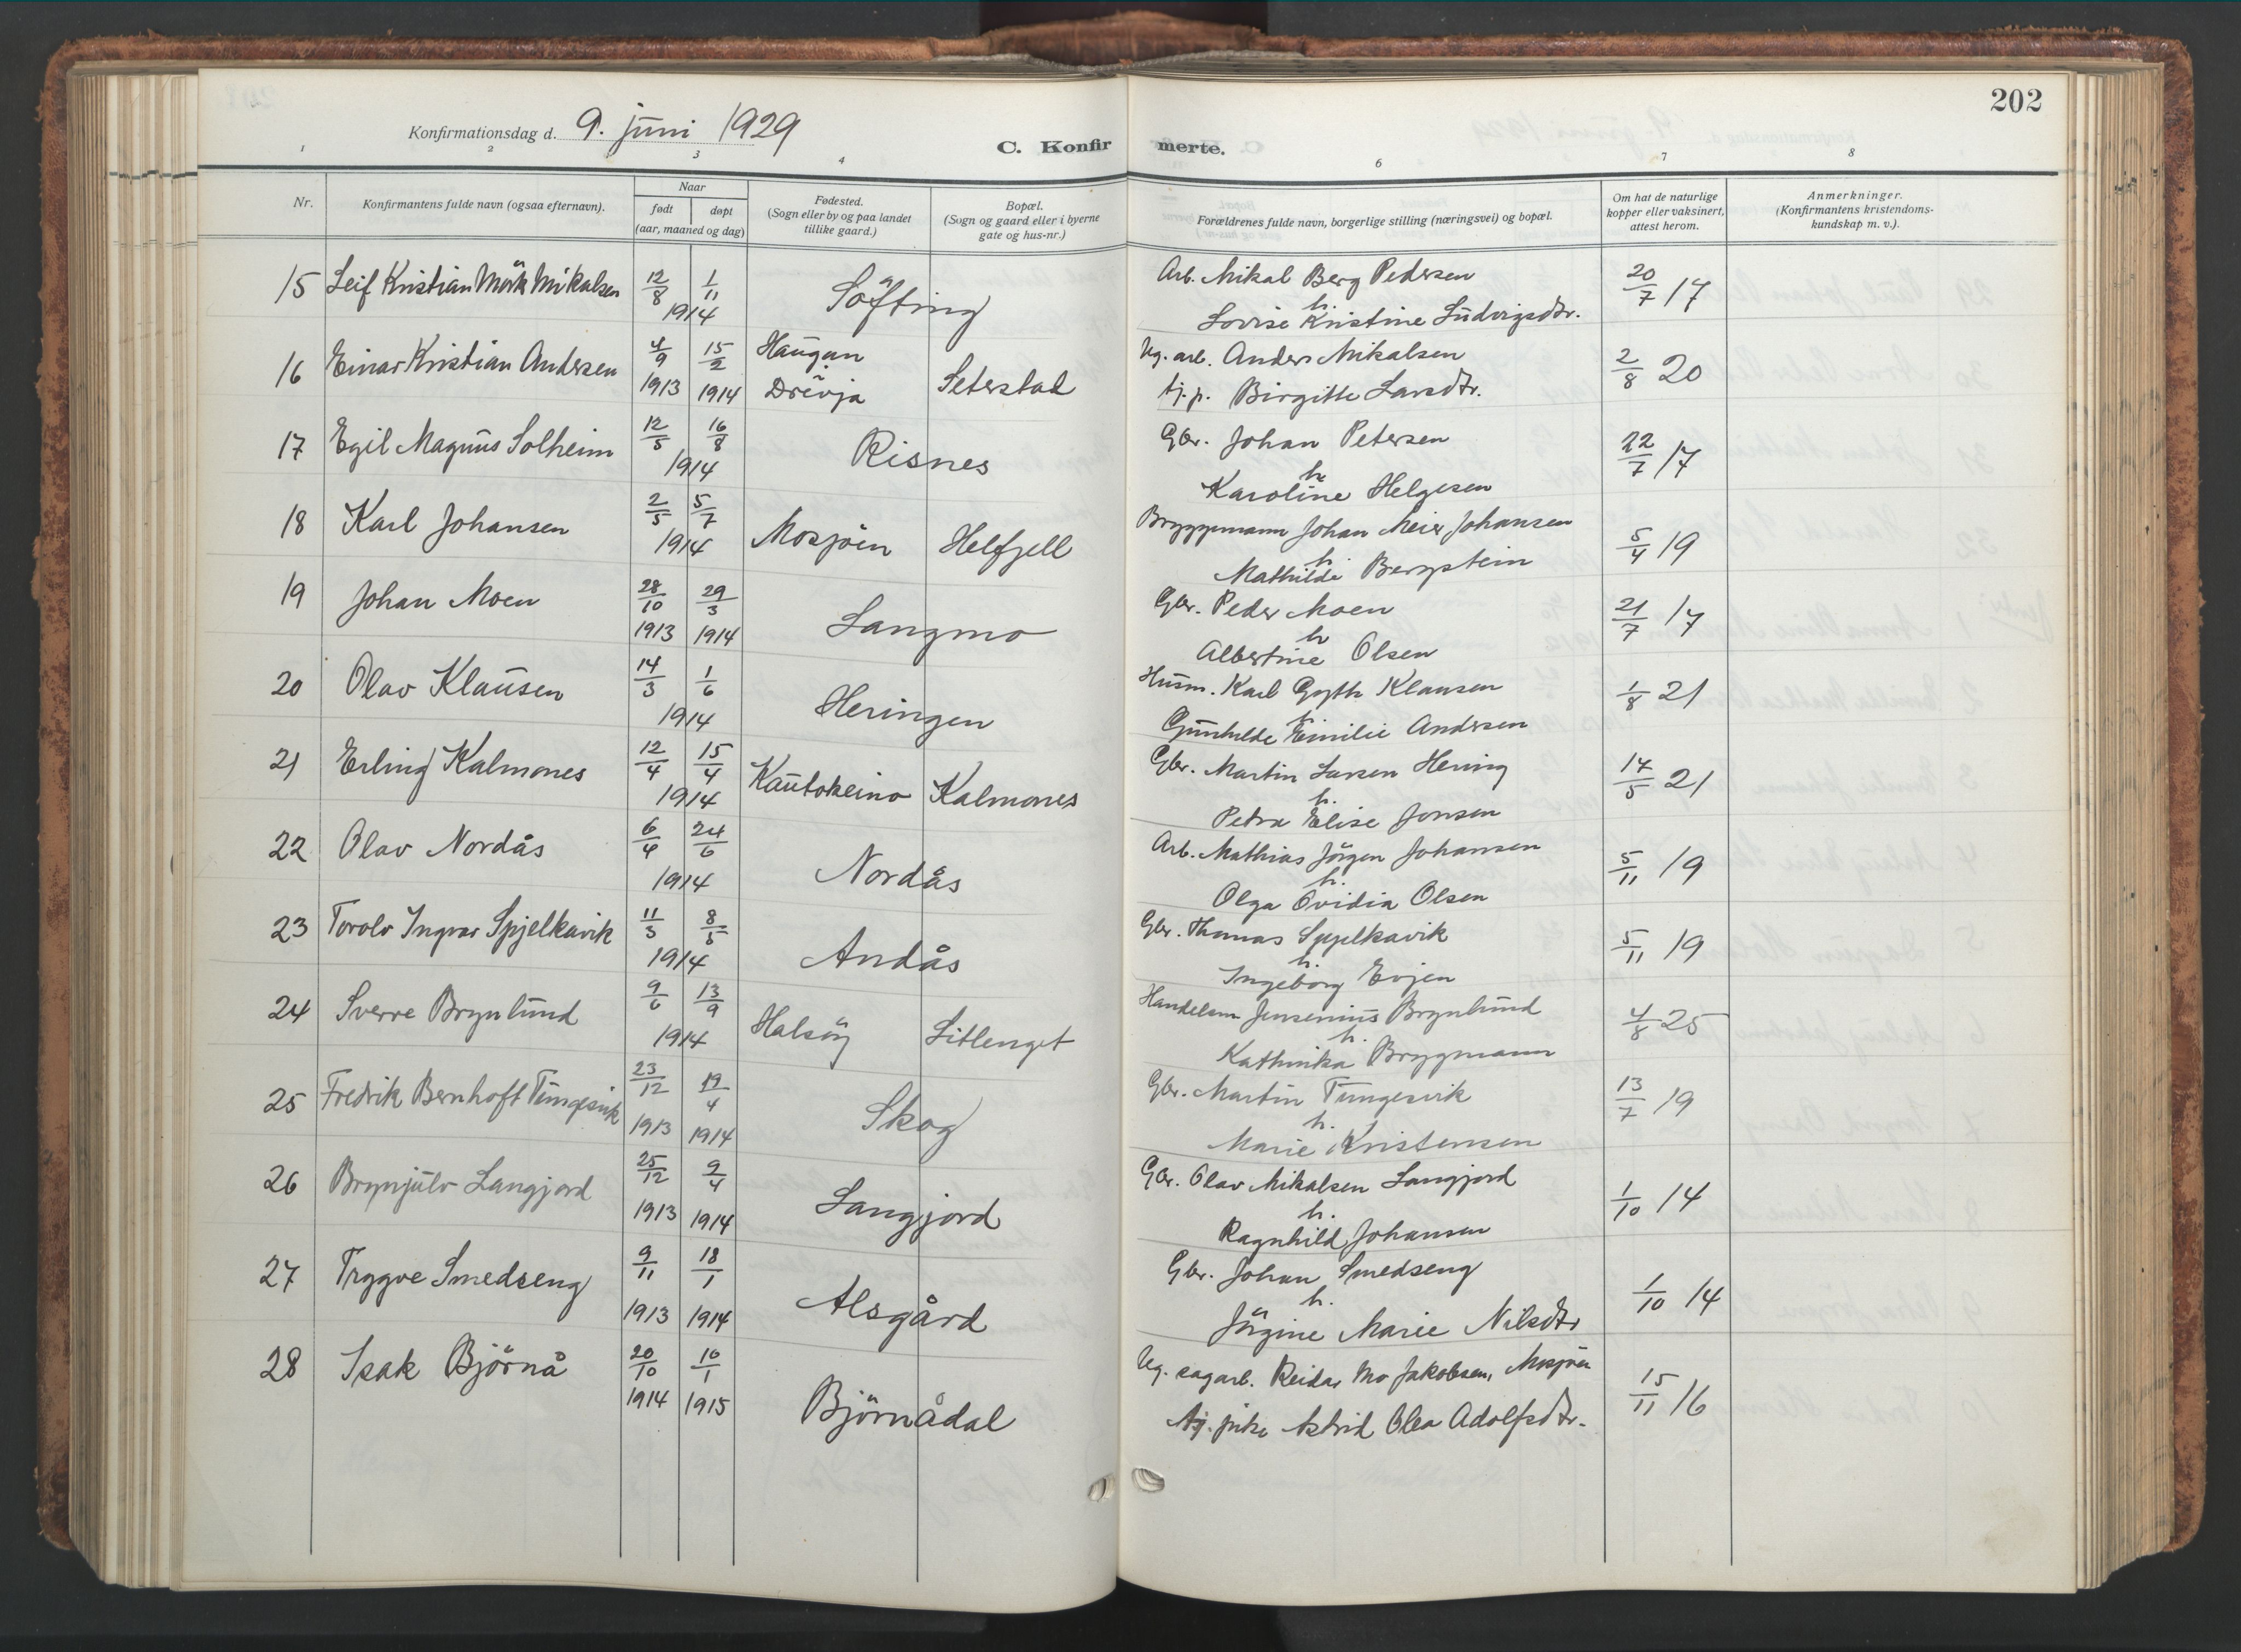 202
Konfirmationsdag d. 9. juni 1929
C. Konfirmerte.
1 2 3 4 6 7 8
Nr.
Konfirmantens fulde navn (ogsaa efternavn).
Naar
født døpt
(aar, maaned og dag)
Fødested.
(Sogn eller by og paa landet
tillike gaard.)
Bopæl.
(Sogn og gaard eller i byerne
gate og hus-nr.)
Forældrenes fulde navn, borgerlige stilling (næringsvei) og bopæl.
Om hat de naturlige
kopper eller vaksinert,
attest herom.
Anmerkninger.
(Konfirmantens kristendoms-
kundskap m. v.).
15 Leif Kristian Mörk Mikalsen 12/8 1/11 1914 Söfting Arb. Mikal Berg Pedersen
h.
Lovise Kristine Ludvigsdtr. 20/7 17
16 Einar Kristian Andersen 4/9 1913 15/2 1914 Haugan Drevja Seterstad Ug. arb. Anders Mikalsen
tj. p. Birgitte Larsdtr. 2/8 20
17 Egil Magnus Solheim 12/5 16/8 1914 Risnes Gbr. Johan Petersen
h.
Karoline Helgesen 22/7 17
18 Karl Johansen 2/5 5/7 1914 Mosjöen Helfjell Bryggemann Johan Meier Johansen
h.
Mathilde Bergstein 5/4 19
19 Johan Moen 28/10 1913 29/3 1914 Langmo Gbr. Peder Moen
h
Albertine Olsen 21/7 17
20 Olav Klausen 14/3 1/6 1914 Heringen Husm. Karl Gyth Klausen
h.
Gunhilde Emilie Andersen 1/8 21
21 Erling Kalmones 12/4 15/4 1914 Kautokeino Kalmones Gbr. Martin Larsen Hering
h.
Petra Elise Jonsen 14/5 21
22 Olav Nordås 6/4 24/6 1914 Nordås Arb. Mathias Jörgen Johansen
h.
Olga Ovidia Olsen 5/11 19
23 Torolv Ingvar Spjelkavik 11/3 8/5 1914 Andås Gbr. Thomas Spjelkavik
h.
Ingeborg Evjen 5/11 19
24 Sverre Brynlund 9/6 13/9 1914 Halsöy Sitlenget Handelsm Jensenius Brynlund
h.
Kathinka Brygmann 4/8 25
25 Fredrik Bernhoft Tungesvik 23/12 1913 19/4 1914 Skog Gbr. Martin Tungesvik
h.
Marie Kristensen 13/7 19
26 Brynjulv Langjord 25/12 1913 9/4 1914 Langjord Gbr. Olav Mikalsen Langjord
h.
Ragnhild Johansen 1/10 14
27 Tryggve Smedseng 9/11 1913 18/1 1914 Alsgård Gbr. Johan Smedseng
h.
Jörgine Marie Nilsdtr 1/10 14
28 Isak Björnå 20/10 1914 10/1 1915 Björnådal Ug. sagarb. Reidar Mo Jakobsen, Mosjöen
tj. pike Astrid Olea Adolfsdtr. 15/11 16